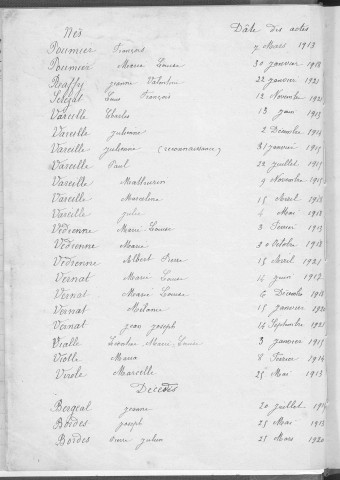 Nés Dâte des actes
Poumier François 7 Mars 1913
Poumier Marie Louise 30 janvier 1918
Reaffy jeanne Valentine 22 janvier 1921
François 12 Novembre 1921
Vareille Charles 13 juin 1913
Vareille julienne 2 Décembre 1914
Vareille julienne (reconnaissance) 31 janvier 1915
Vareille Paul 22 juillet 1915
Vareille 9 Novembre 1915
Vareille Marceline 15 Avril 1918
Vareille julie 4 Mai 1918
Védrenne Marie Louise 3 Février 1915
Védrenne Marie 30 Octobre 1918
Védrenne Albert Pierre 15 Avril 1921
Vernat Marie Louise 14 juin 1917
Vernat Marie Louise 6 Décembre 1918
Vernat Mélanie 15 janvier 1920
Vernat jean joseph 14 Septembre 1921
Vialle Marie Louise 3 janvier 1915
Violle Maria 8 Février 1914
Virole Marcelle 25 Mai 1913
Décédés
Bergeal jeanne 20 juillet
Bordes joseph 25 Mai 1913
Bordes Pierre julien 25 Mars 1920